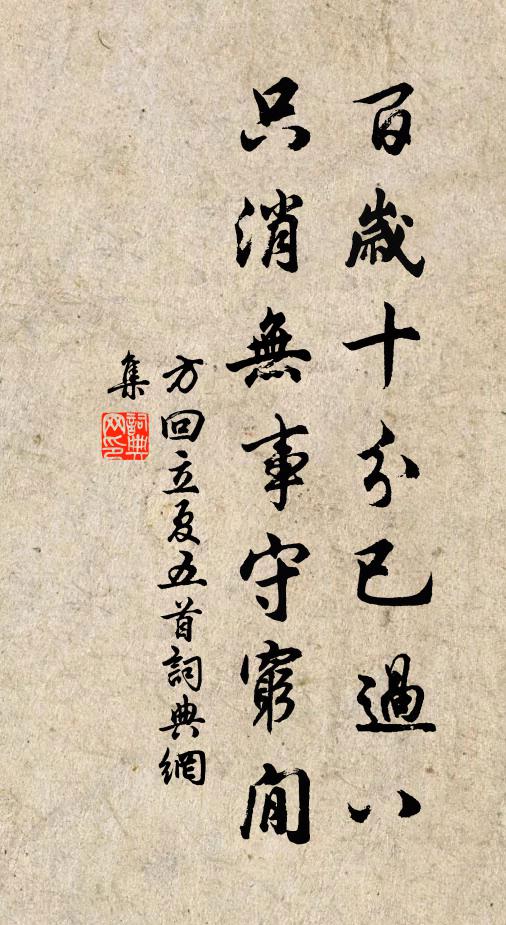 百歲十分已過八
只消無事守窮閒
方回立夏五首詞典網
集
詞典
网印